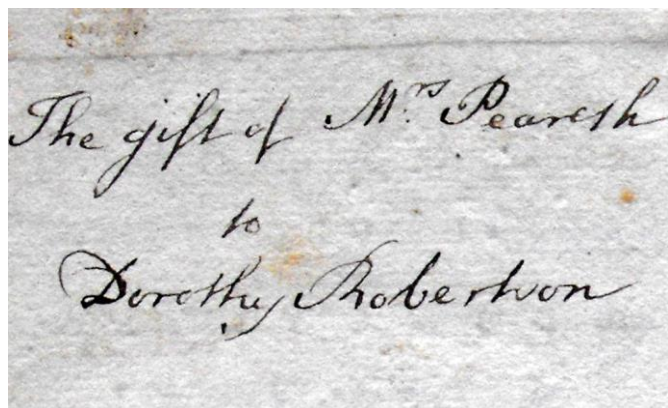 The gift of Mrs. Peareth
to
Dorothy Robertson